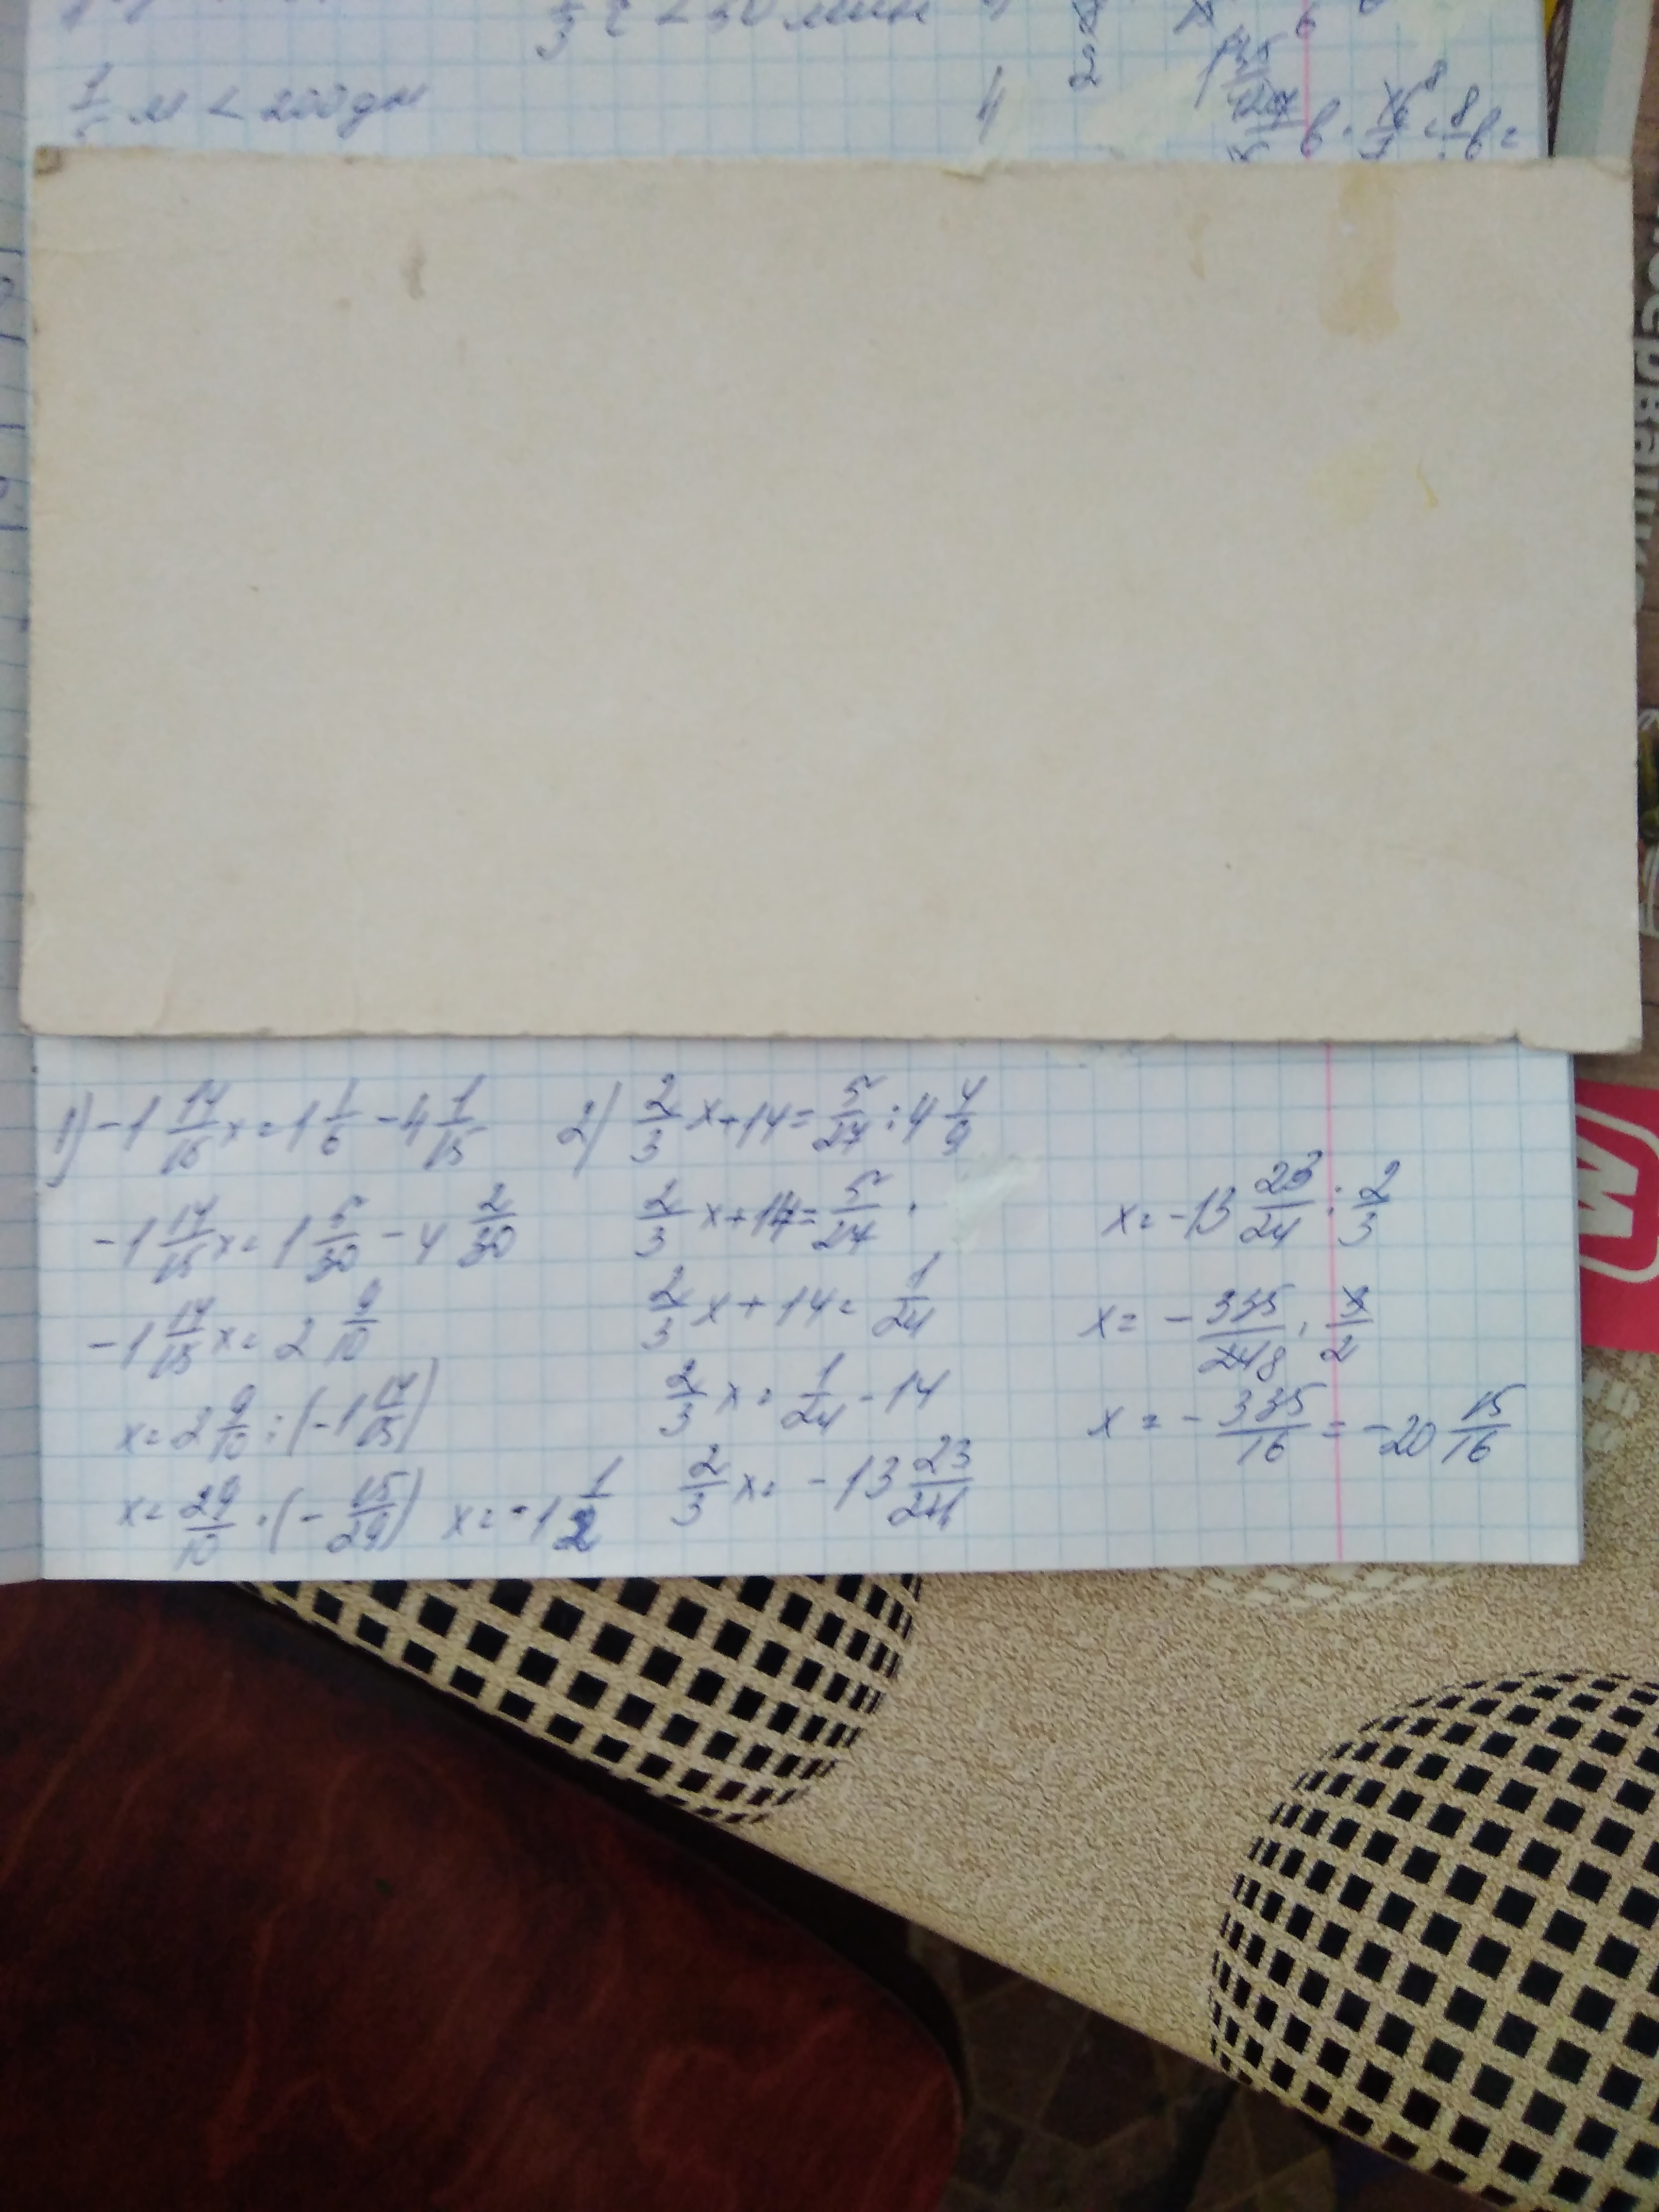 < 200 дм
1) -1 14/15 x = 1 1/6 - 4 1/15
-1 14/15 x = 1 5/30 - 4 2/30
-1 14/15 x = 2 9/10
x = 2 9/10 : (-1 14/15)
x = 29/10 · (- 15/29) x = -1 1/2
2) 2/3 x + 14 = 5/27 : 4 4/9
2/3 x + 14 = 5/27 ·
2/3 x + 14 = 1/24
2/3 x = 1/24 - 14
2/3 x = - 13 23/24
x = -13 23/24 : 2/3
x = - 335/24 8 · 3/2
x = - 335/16 = -20 15/16